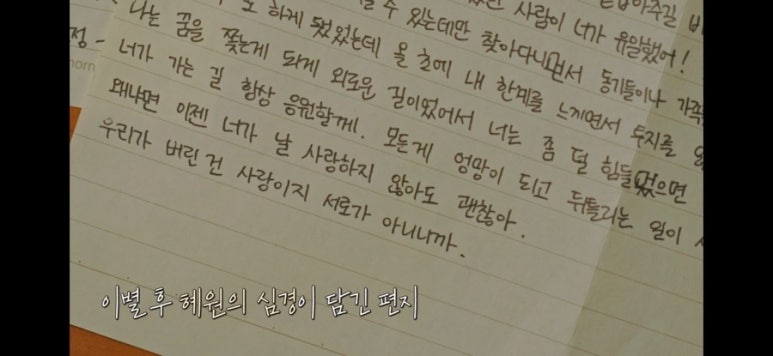 사람이 너가 유일했어!
하게 됐었는데 올 초에 내 한계를 느끼면서 투지를
나는 꿈을 쫓는게 되게 외로운 길이었어서 너는 좀 덜 힘들었으면
수 있는데만 찾아다니면서 동기들이나
너가 가는 길 항상 응원할게. 모든게 엉망이 되고 뒤틀리는 일이
왜냐면 이젠 너가 날 사랑하지 않아도 괜찮아.
우리가 버린 건 사랑이지 서로가 아니니까.
정-
horn
이별 후 혜원의 심경이 담긴 편지